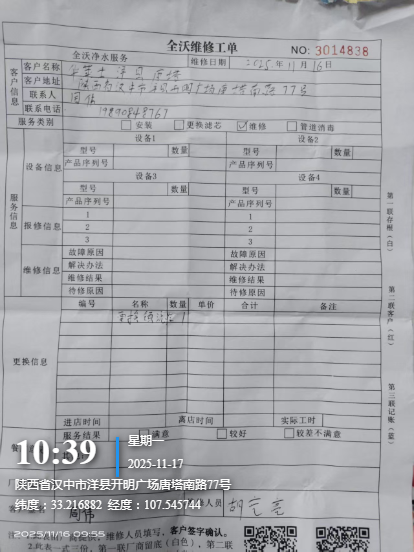 全沃维修工单
NO: 3014838
全沃净水服务
维修日期 2025年11月16日
客户信息
客户名称
客户地址
联系人 周伟
联系电话
服务类别 安装 更换滤芯 维修 管道消毒
服务信息
设备信息
设备1 设备2
型号 数量 型号 数量
产品序列号 产品序列号
设备3 设备4
型号 数量 型号 数量
产品序列号 产品序列号
报修信息
1 1
2 2
3 3
维修信息
故障原因 故障原因
解决办法 解决办法
维修结果 维修结果
待修原因 待修原因
更换信息
编号 名称 数量 单价 合计 备注
进店时间 离店时间 实际工时
服务结果 满意 较好 较差不满意
第一联存根(白)
第二联客户(红)
第三联记账(蓝)
10:39
星期一
2025-11-17
陕西省汉中市洋县开明广场唐塔南路77号
纬度：33.216882 经度：107.545744
周伟
人员 胡亮亮
2025/11/16 09:55
维修人员填写，客户签字确认。
2.此表一式三份，第一联厂商留底(白色)，第二联